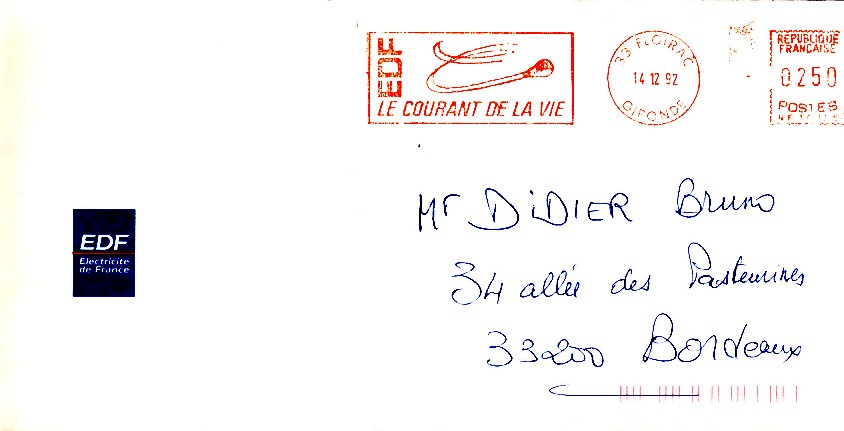 EDF
LE COURANT DE LA VIE
33 FLOIRAC
14 12 92
GIRONDE
REPUBLIQUE
FRANCAISE
0250
POSTES
EDF
Electricité
de France
Mr DiDIER Bruno
34 allée des
33200 Bordeaux